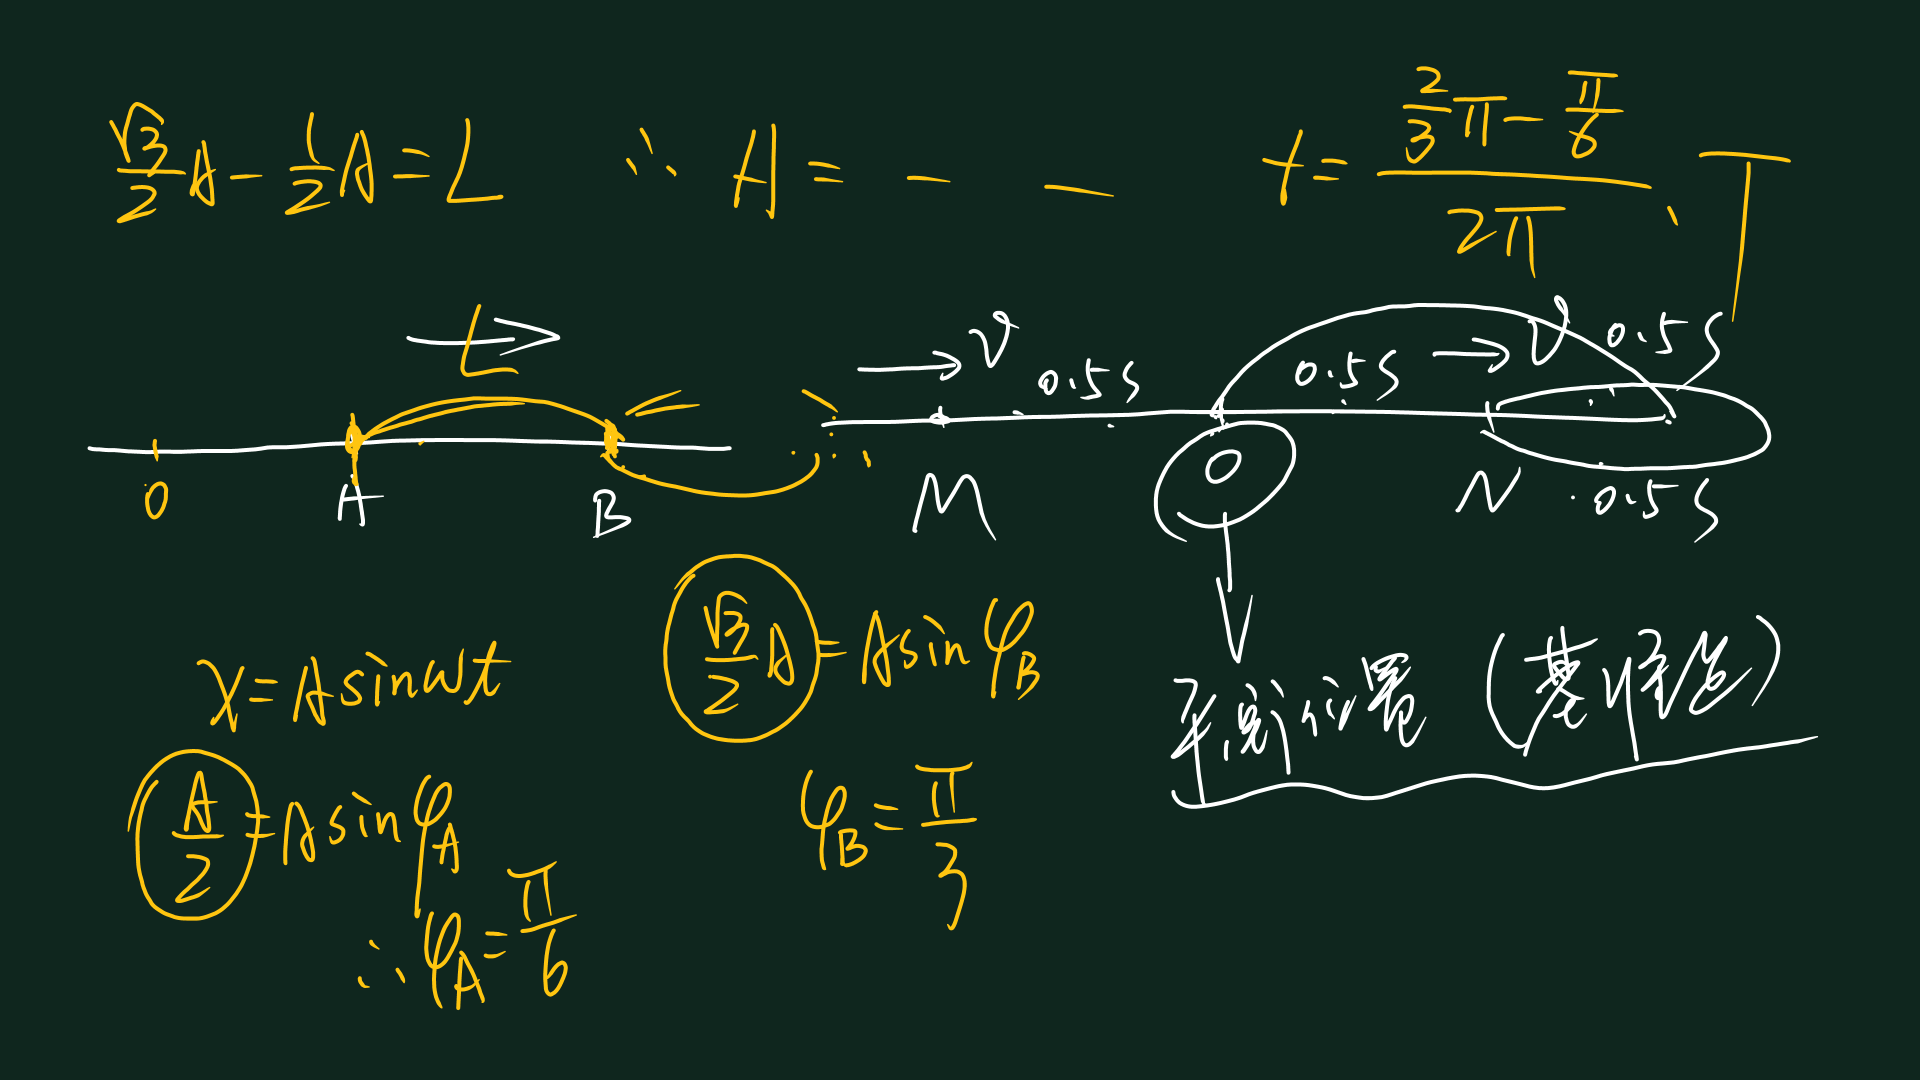 √3/2 A - 1/2 A = L ∴ A = - - t = (2/3 π - π/6)/2π · T
L
v 0.5s 0.5s v 0.5s
O A B M O N 0.5s
x = A sin ωt
√3/2 A = A sin φB
平衡位置 (基准点)
A/2 = A sin φA
φB = π/3
∴ φA = π/6